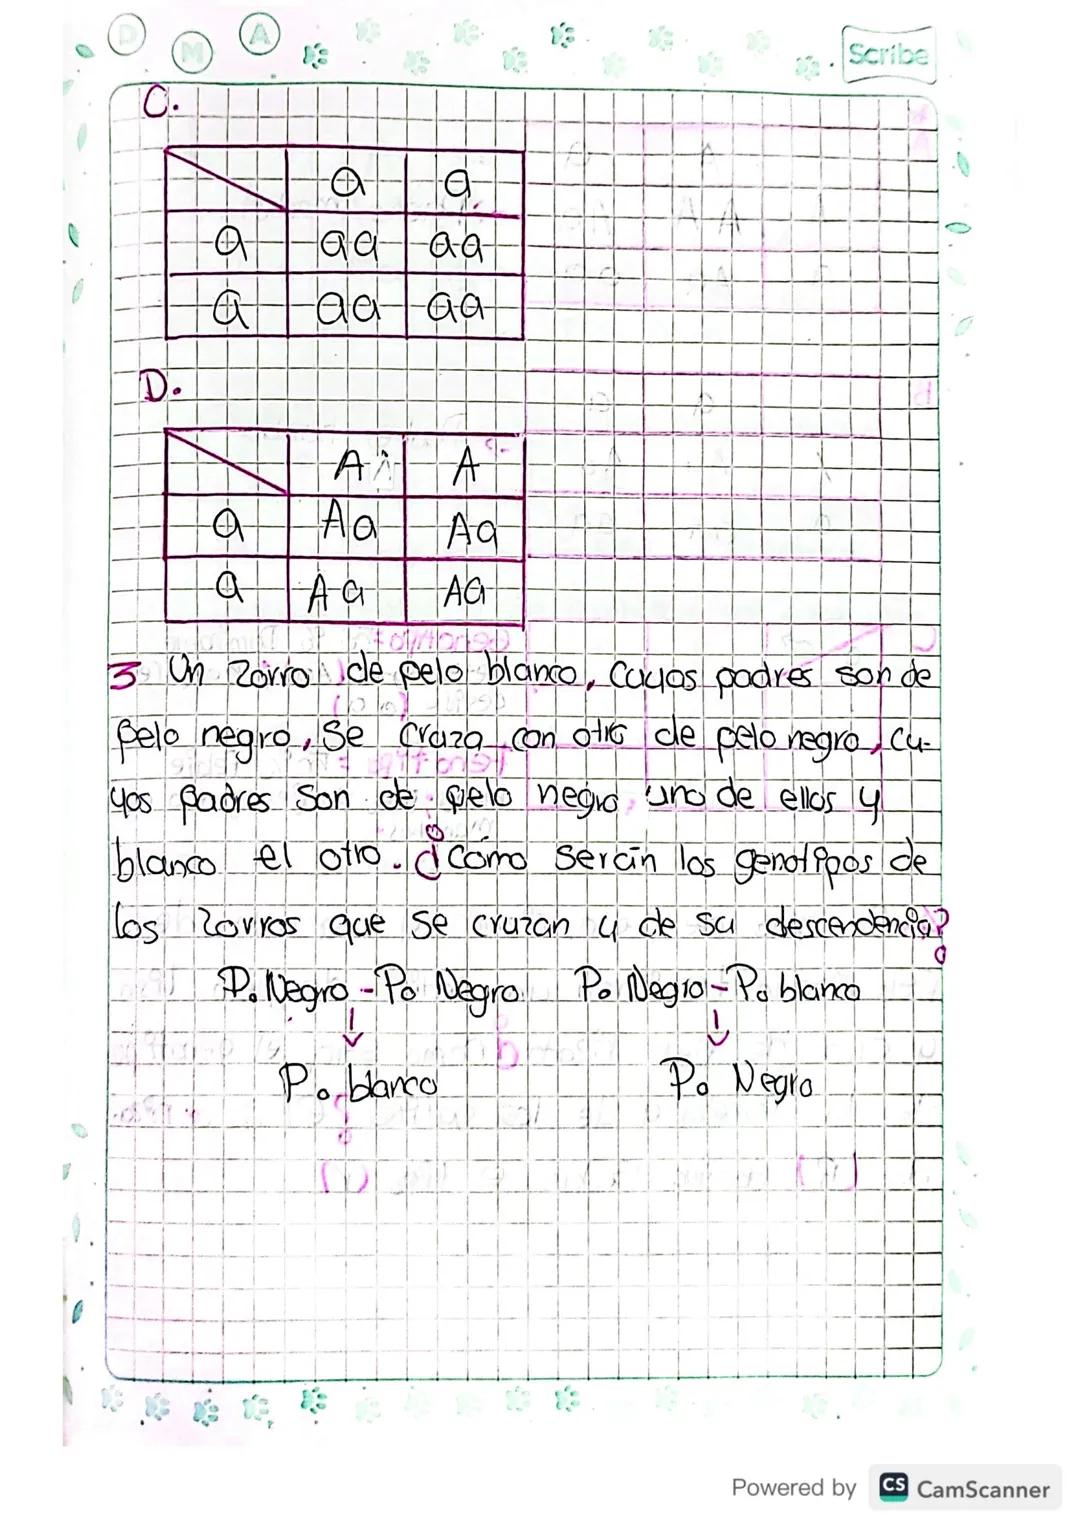 D M A
Scribe
C.
a a
a aa aa
a aa aa
D.
A A
a Aa Aa
a Aa Aa
3 Un zorro de pelo blanco, cuyos padres son de
pelo negro, se cruza con otro de pelo negro, cu-
yos padres son de pelo negro, uno de ellos y
blanco el otro. ¿cómo serán los genotipos de
los zorros que se cruzan y de su descendencia?
P. Negro - P. Negro P. Negro - P. blanco
↓ ↓
P. blanco P. Negro
Powered by CS CamScanner